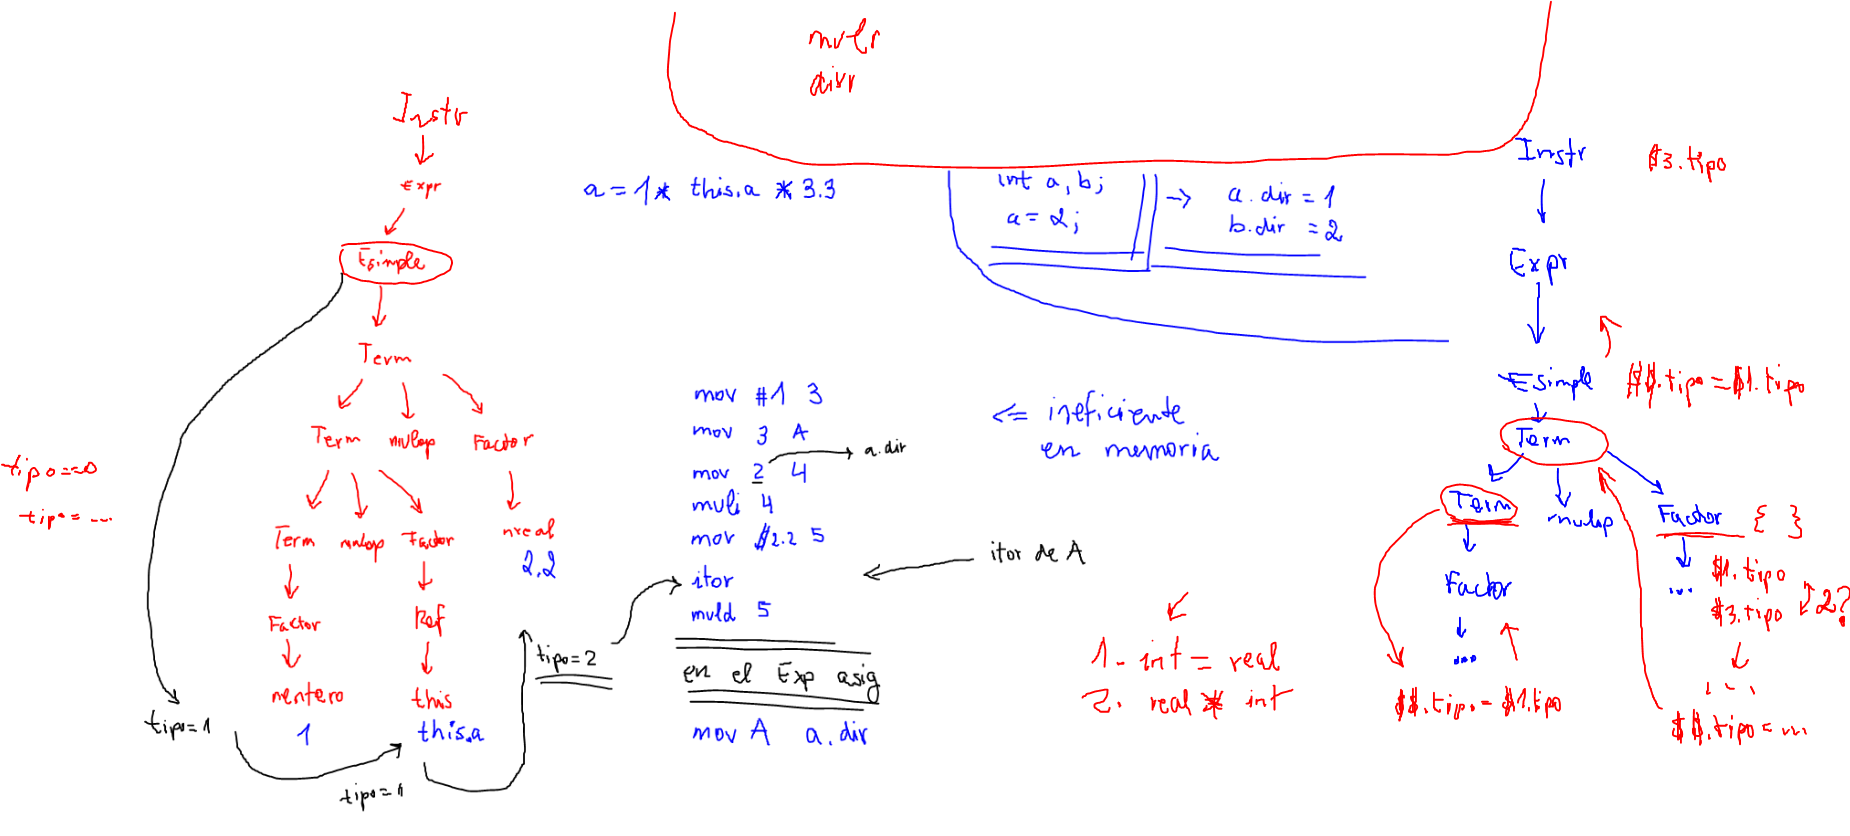 mulr
divr
Instr
Expr
Esimple
Term
Term mulop Factor
Term mulop Factor nreal
2.2
Factor Ref
nentero this
1 this.a
tipo==0
tipo=...
tipo=1
tipo=1
tipo=2
a=1* this.a *3.3
int a, b;
a=2;
-> a.dir = 1
b.dir = 2
mov #1 3
mov 3 A
mov 2 4
a.dir
muli 4
mov $2.2 5
itor
itor de A
muld 5
en el Exp asig
mov A a.dir
<= ineficiente
en memoria
1- int = real
2. real * int
Instr
$3.tipo
Expr
Esimple
$$.tipo = $1.tipo
Term
Term mulop Factor { }
Factor ...
...
$1.tipo
$3.tipo 2?
...
$$.tipo = $1.tipo
$$.tipo = ...